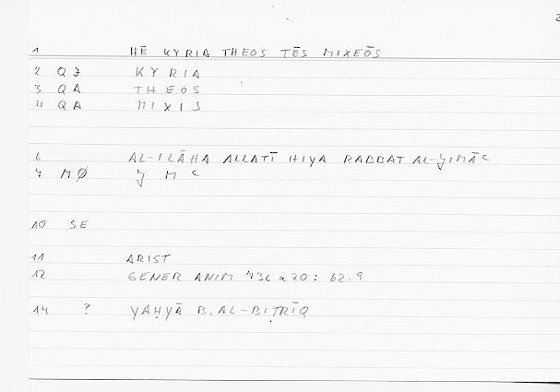 1 HĒ KYRIA THEOS TĒS MIXEŌS
2 QZ KYRIA
3 QA THEOS
4 QA MIXIS
6 AL-ILĀHA ALLATĪ HIYA RABBAT AL-ǦIMĀᶜ
7 MØ Ǧ M ᶜ
10 SE
11 ARIST
12 GENER ANIM 736 a 20: 62.9
14 ? YAḤYĀ B. AL-BIṬRĪQ